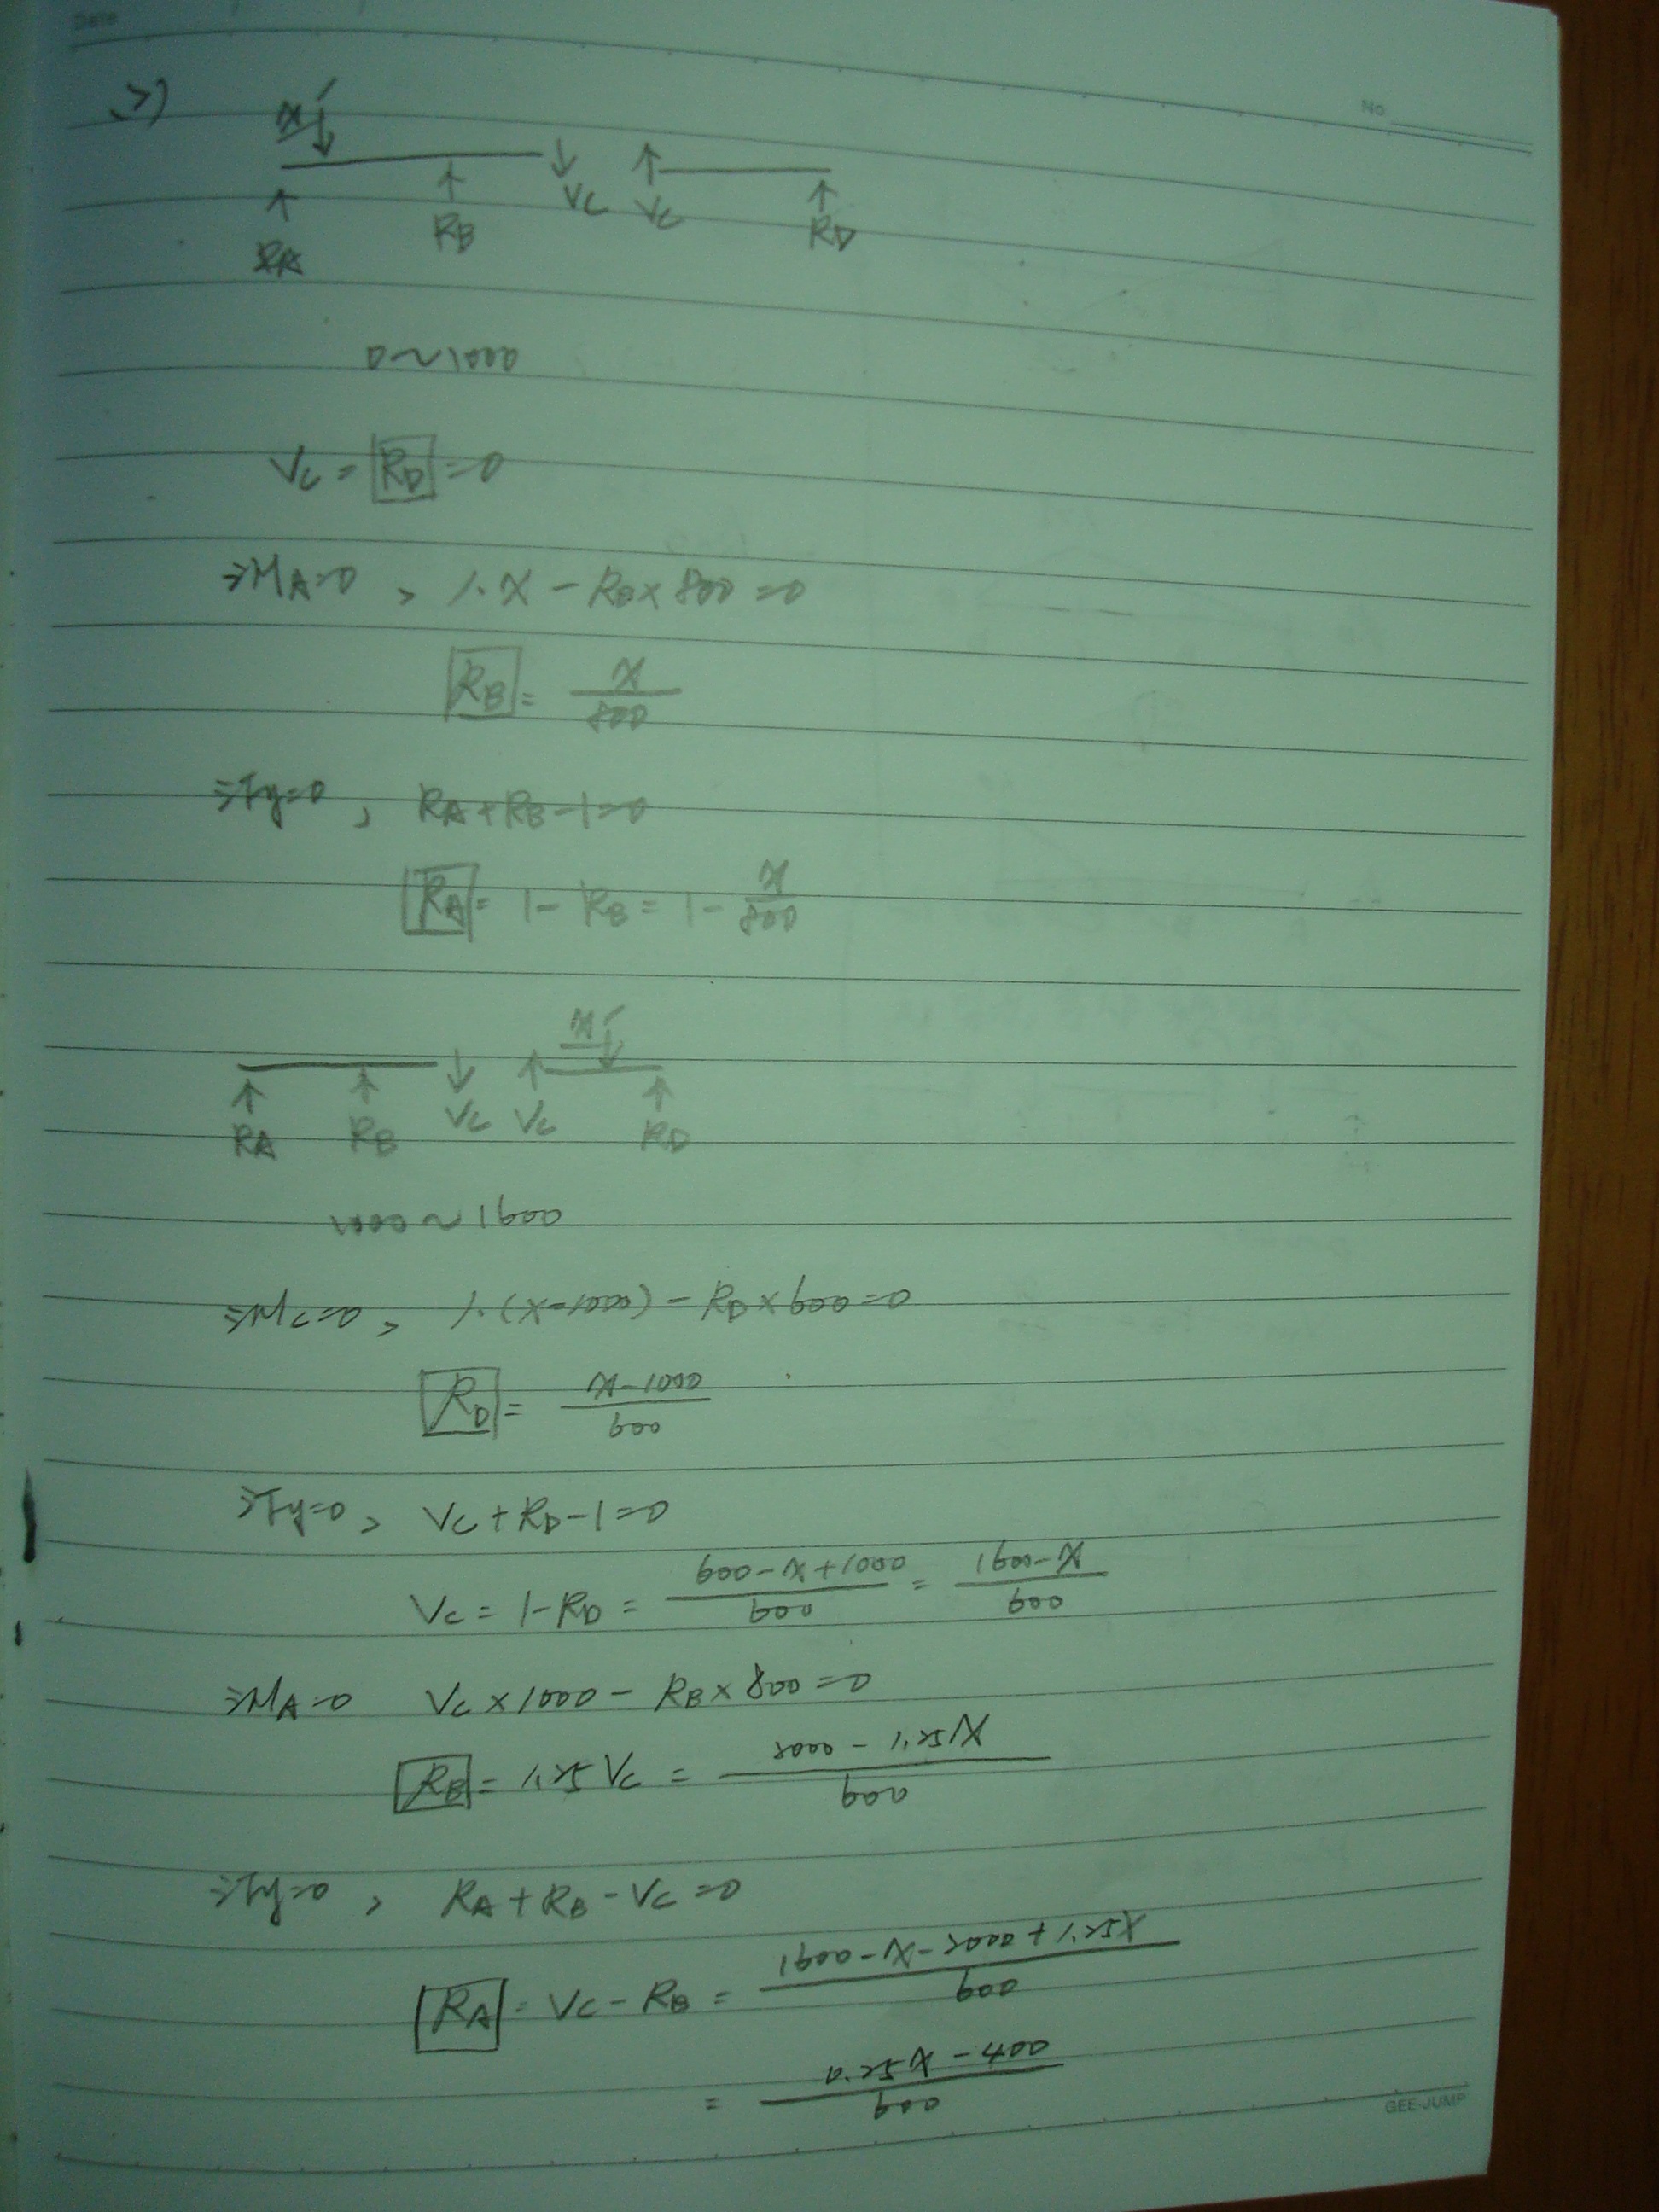 Date
No.
2)
x 1
RA RB VC VC RD
0~1000
VC = RD = 0
ΣMA=0, 1·x - RB×800=0
RB = x/800
ΣFy=0, RA+RB-1=0
RA = 1-RB = 1- x/800
x 1
RA RB VC VC RD
1000~1600
ΣMC=0, 1·(x-1000) - RD×600=0
RD = x-1000/600
ΣFy=0, VC+RD-1=0
VC = 1-RD = 600-x+1000/600 = 1600-x/600
ΣMA=0 VC×1000 - RB×800=0
RB = 1.25VC = 2000-1.25x/600
ΣFy=0, RA+RB-VC=0
RA = VC-RB = 1600-x-2000+1.25x/600
= 0.25x-400/600
GEE-JUMP